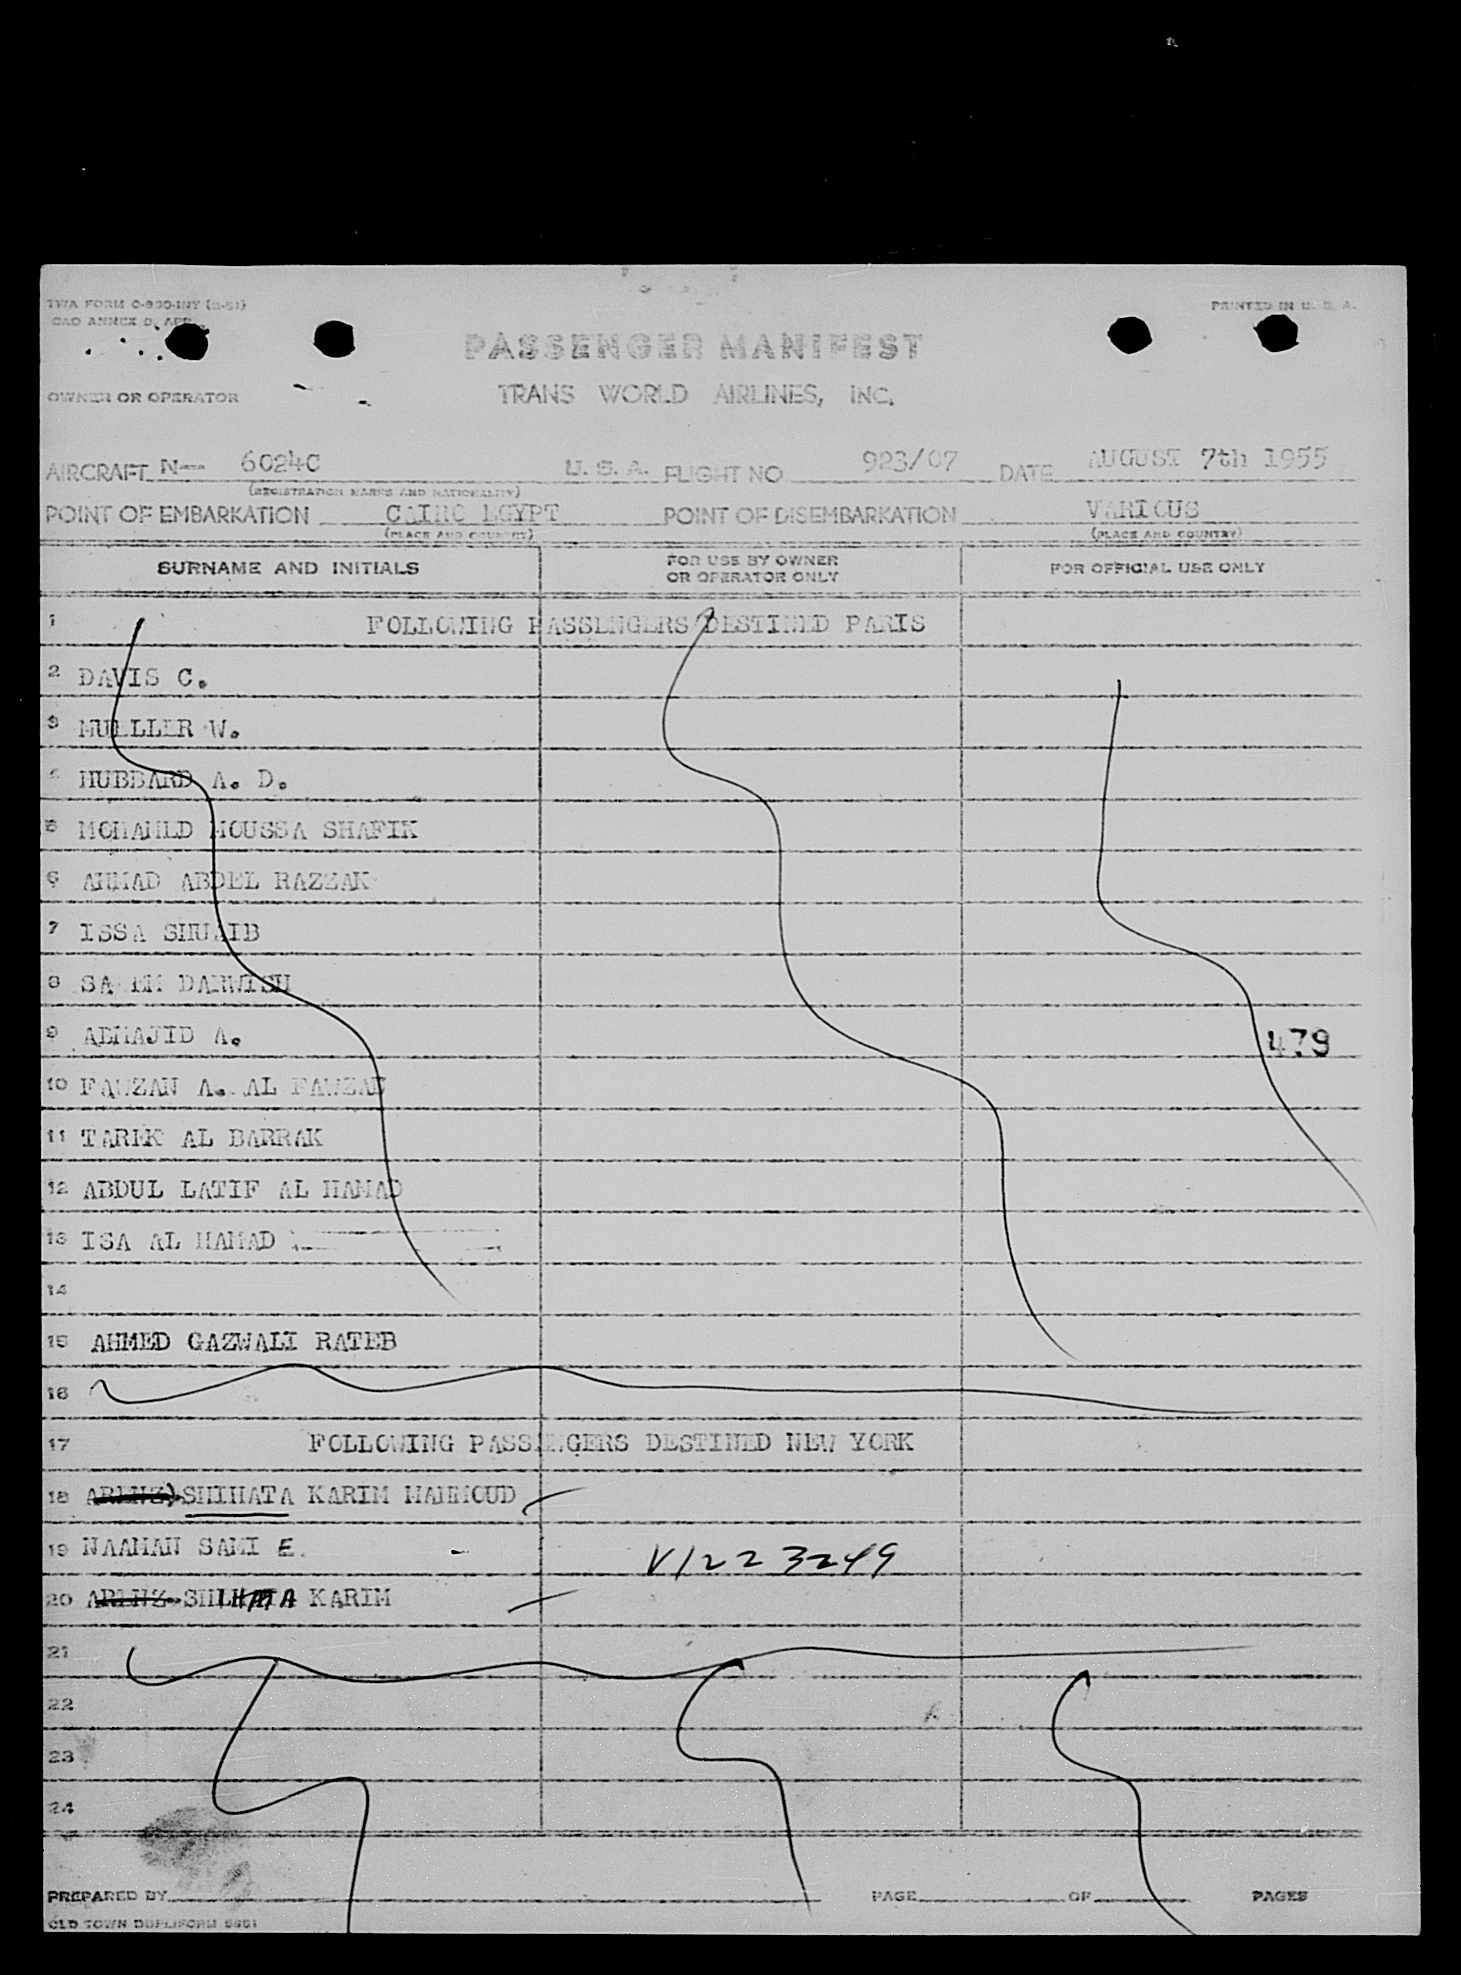 TWA FORM O-930-INT (
CAO ANNEX 9, APP.
PRINTED IN U. S. A.
PASSENGER MANIFEST
OWNER OR OPERATOR TRANS WORLD AIRLINES, INC.
AIRCRAFT N-- 6024C U. S. A. FLIGHT NO 923/07 DATE AUGUST 7th 1955
(REGISTRATION MARKS AND NATIONALITY)
POINT OF EMBARKATION CAIRO EGYPT POINT OF DISEMBARKATION VARIOUS
(PLACE AND COUNTRY) (PLACE AND COUNTRY)
SURNAME AND INITIALS FOR USE BY OWNER OR OPERATOR ONLY FOR OFFICIAL USE ONLY
1 FOLLOWING PASSENGERS DESTINED PARIS
2 DAVIS C.
3 MUELLER W.
4 HUBBARD A. D.
5 MOHAMED MOUSSA SHAFIK
6 AHMAD ABDEL RAZZAK
7 ISSA SHUAIB
8 DARWISH
9 ABMAJID A. 479
10 FAWZAN A. AL FAWZAN
11 TAREK AL BARRAK
12 ABDUL LATIF AL HAMAD
13 ISA AL HAMAD
14
15 AHMED GAZWALI RATEB
16
17 FOLLOWING PASSENGERS DESTINED NEW YORK
18 SHIHATA KARIM MAHMOUD
19 NAAMAN SAMI E. V1223249
20 SHIHATA KARIM
21
22
23
24
PREPARED BY PAGE OF PAGES
OLD TOWN DUPLIFORM